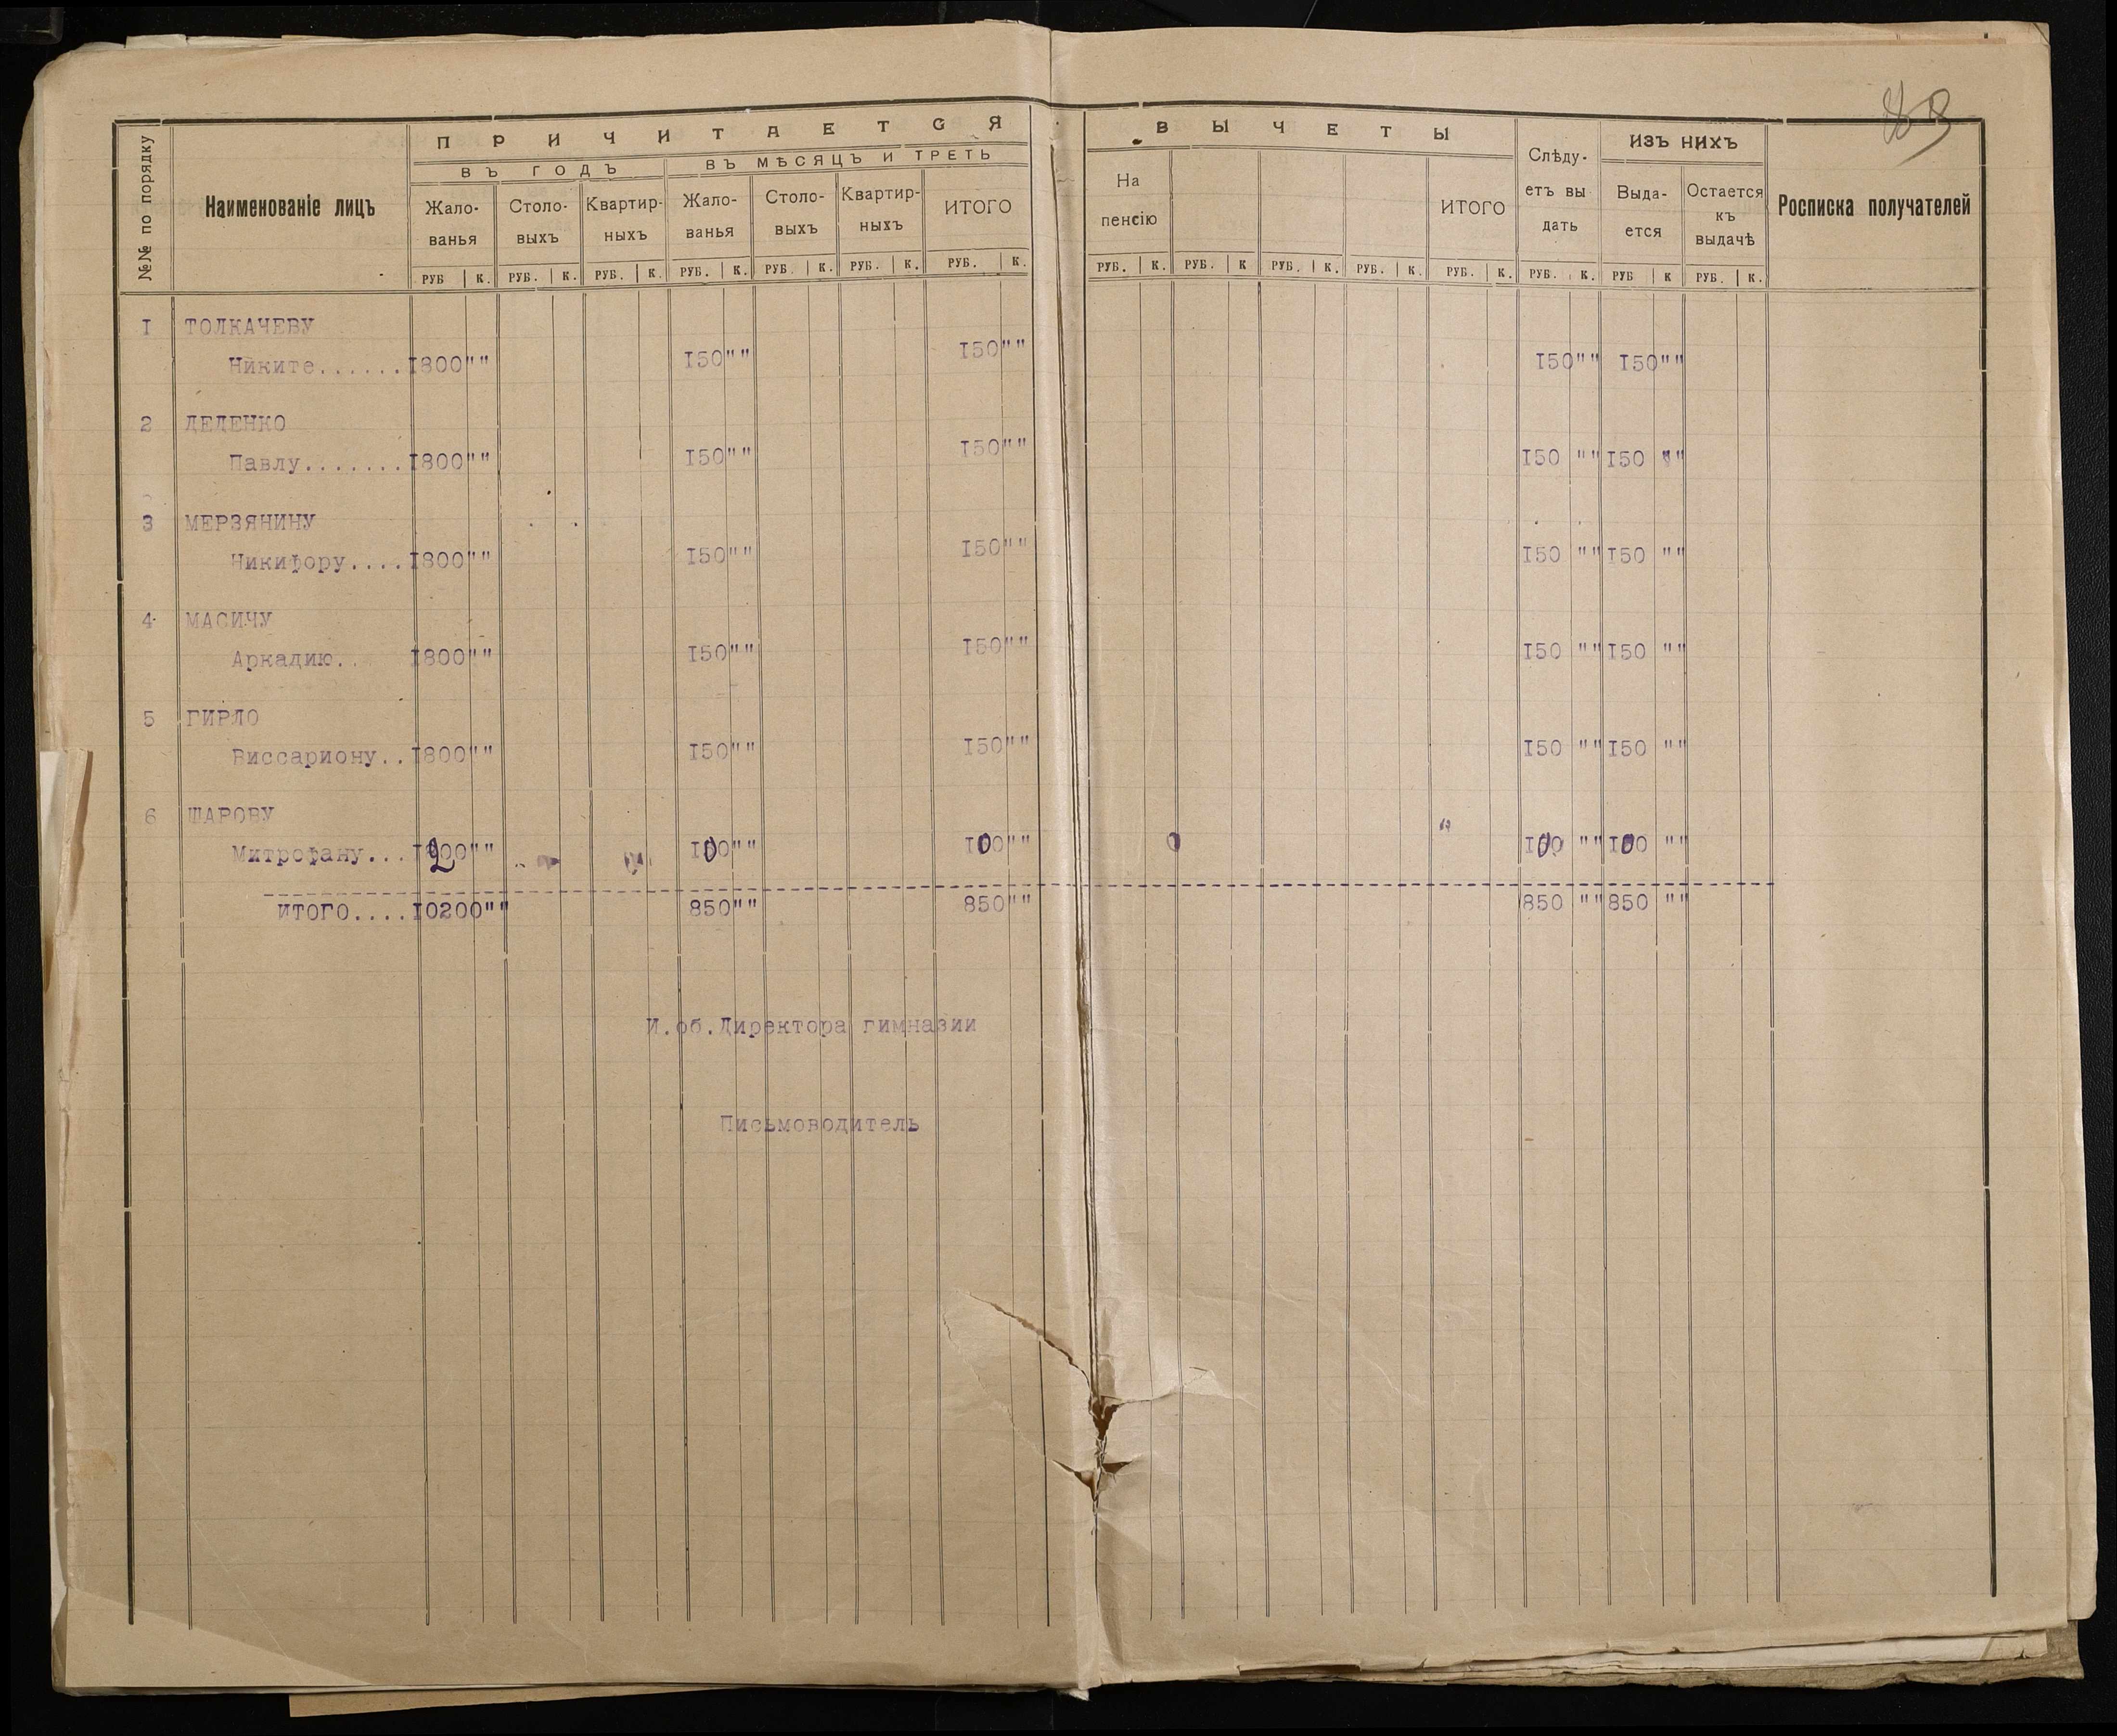 83
№№ по порядку
Наименованіе лицъ
ПРИЧИТАЕТСЯ
ВЪ ГОДЪ
ВЪ МѢСЯЦЪ И ТРЕТЬ
Жало-
ванья
Столо-
выхъ
Квартир-
ныхъ
Жало-
ванья
Столо-
выхъ
Квартир-
ныхъ
ИТОГО
ВЫЧЕТЫ
На
пенсію
ИТОГО
Слѣду-
етъ вы
дать
ИЗЪ НИХЪ
Выда-
ется
Остается
къ
выдачѣ
Росписка получателей
РУБ К. РУБ. К. РУБ. К. РУБ. К. РУБ. К. РУБ. К. РУБ. К. РУБ. К. РУБ. К РУБ. К. РУБ. К. РУБ. К. РУБ. К. РУБ К РУБ. К.
I ТОЛКАЧЕВУ
Никите......I800"" I50"" I50"" I50"" I50""
2 ДЕДЕНКО
Павлу.......I800"" I50"" I50"" I50 "" I50 ""
3 МЕРЗЯНИНУ
Никифору....I800"" I50"" I50"" I50 "" I50 ""
4 МАСИЧУ
Аркадию.. I800"" I50"" I50"" I50 "" I50 ""
5 ГИРЛО
Виссариону..I800"" I50"" I50"" I50 "" I50 ""
6 ШАРОВУ
Митрофану...I200"" I00"" I00"" I00 "" I00 ""
ИТОГО....I0200"" 850"" 850"" 850 "" 850 ""
И.об.Директора гимназии
Письмоводитель